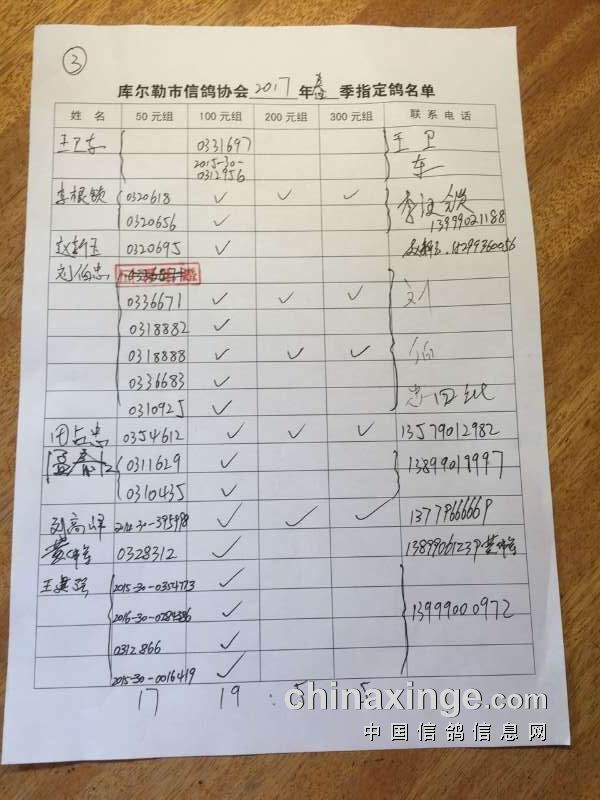 ③
库尔勒市信鸽协会 2017 年 春 季指定鸽名单
姓 名 50元组 100元组 200元组 300元组 联系电话
王卫东 0331697 王卫
2015-30-0312956 东
李根锁 0320618 ✓ ✓ ✓
0320656 ✓ 13999021188
赵新玉 0320695 ✓
刘伯忠
0336671 ✓ ✓ ✓ 刘
0318882 ✓
0318888 ✓ ✓ ✓ 伯
0336683 ✓
0310925 ✓ 忠
田占忠 0354612 ✓ ✓ ✓ 13579012982
0311629 ✓ 13899019997
0310435 ✓
刘高峰 2014-30-395998 ✓ ✓ ✓ 13779666669
0328312 ✓
王建强 2015-30-0354773 ✓
2016-30-0784386 ✓ 13999000972
0312866 ✓
2015-30-0016419 ✓
17 19 5 5
chinaxinge.com
中国信鸽信息网